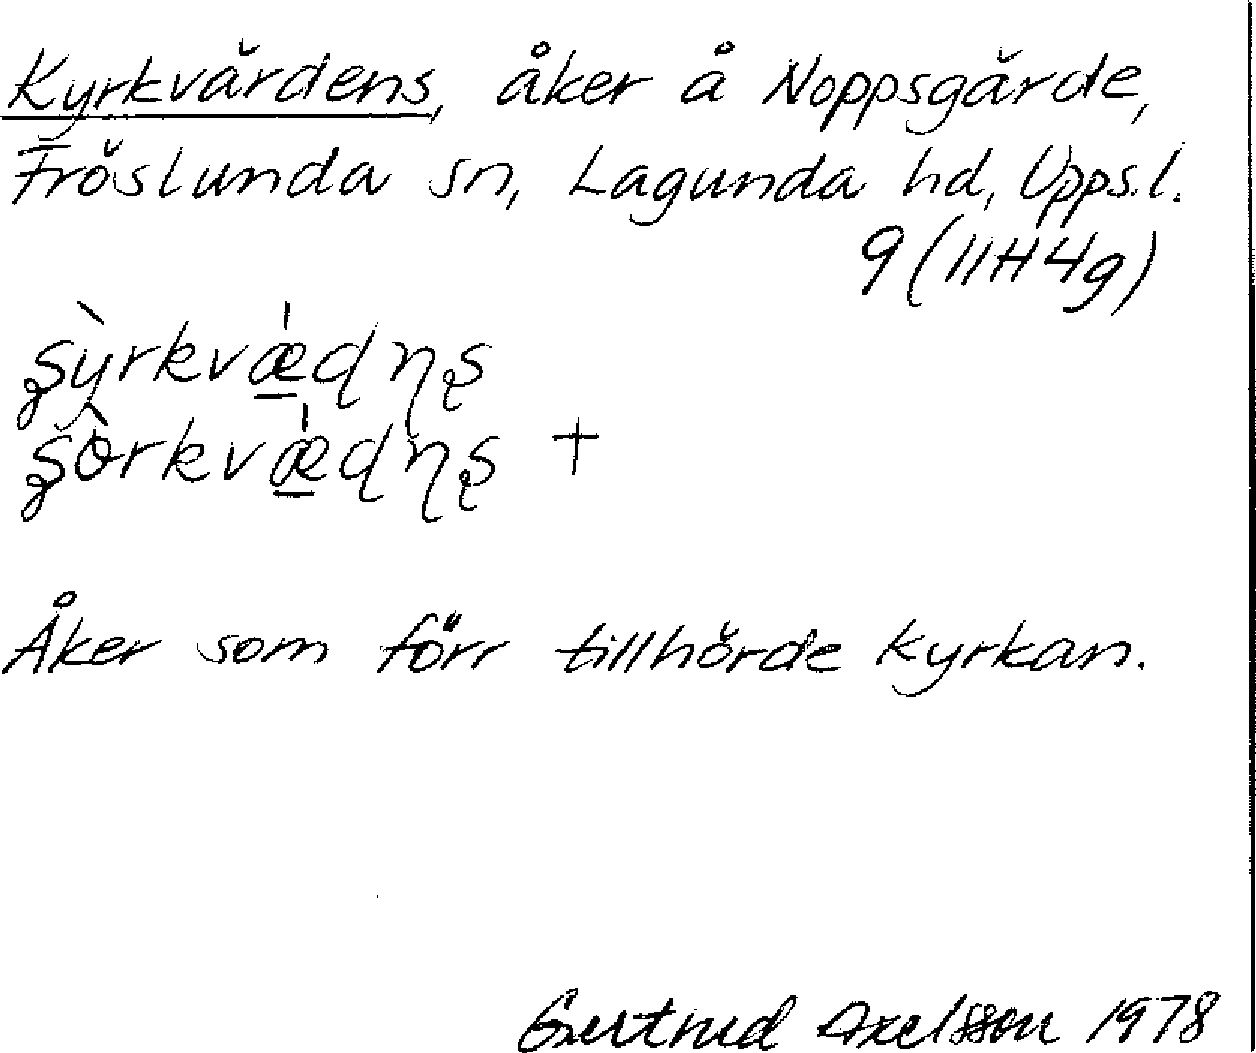 Kyrkvärdens, åker å Noppsgärde,
Fröslunda sn, Lagunda hd, Uppsl.
9 (11H4g)
Åker som förr tillhörde kyrkan.
Gertrud Axelsson 1978